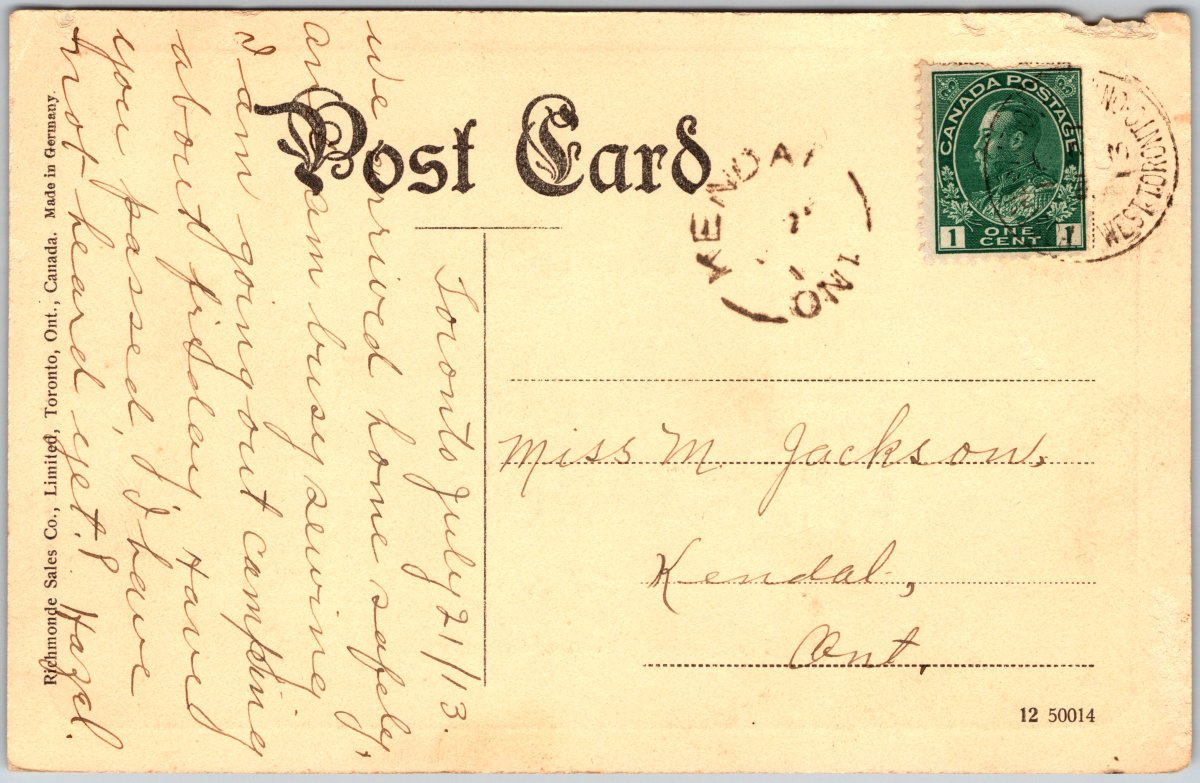 Post Card
CANADA POSTAGE
1 ONE CENT 1
WEST-TORONTO
ONT
13
KENDAL
ONT
Toronto July 21/13.
we arrived home safely,
and am busy sewing
I am going out camping
about friday Have
you passed, I have
not heard yet.? Hazel.
Miss M. Jackson,
Kendal,
Ont,
Richmonde Sales Co., Limited, Toronto, Ont., Canada. Made in Germany.
12 50014